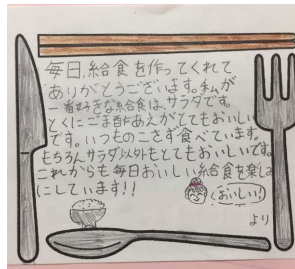 毎日、給食を作ってくれて
ありがとうございます。私が
一番好きな給食は、サラダです。
とくにごま酢あえがとてもおいしい
です。いつものこさず食べています。
もちろんサラダ以外もとてもおいしいです。
これからも毎日おいしい給食を楽しみ
にしています!!
おいしい!
より